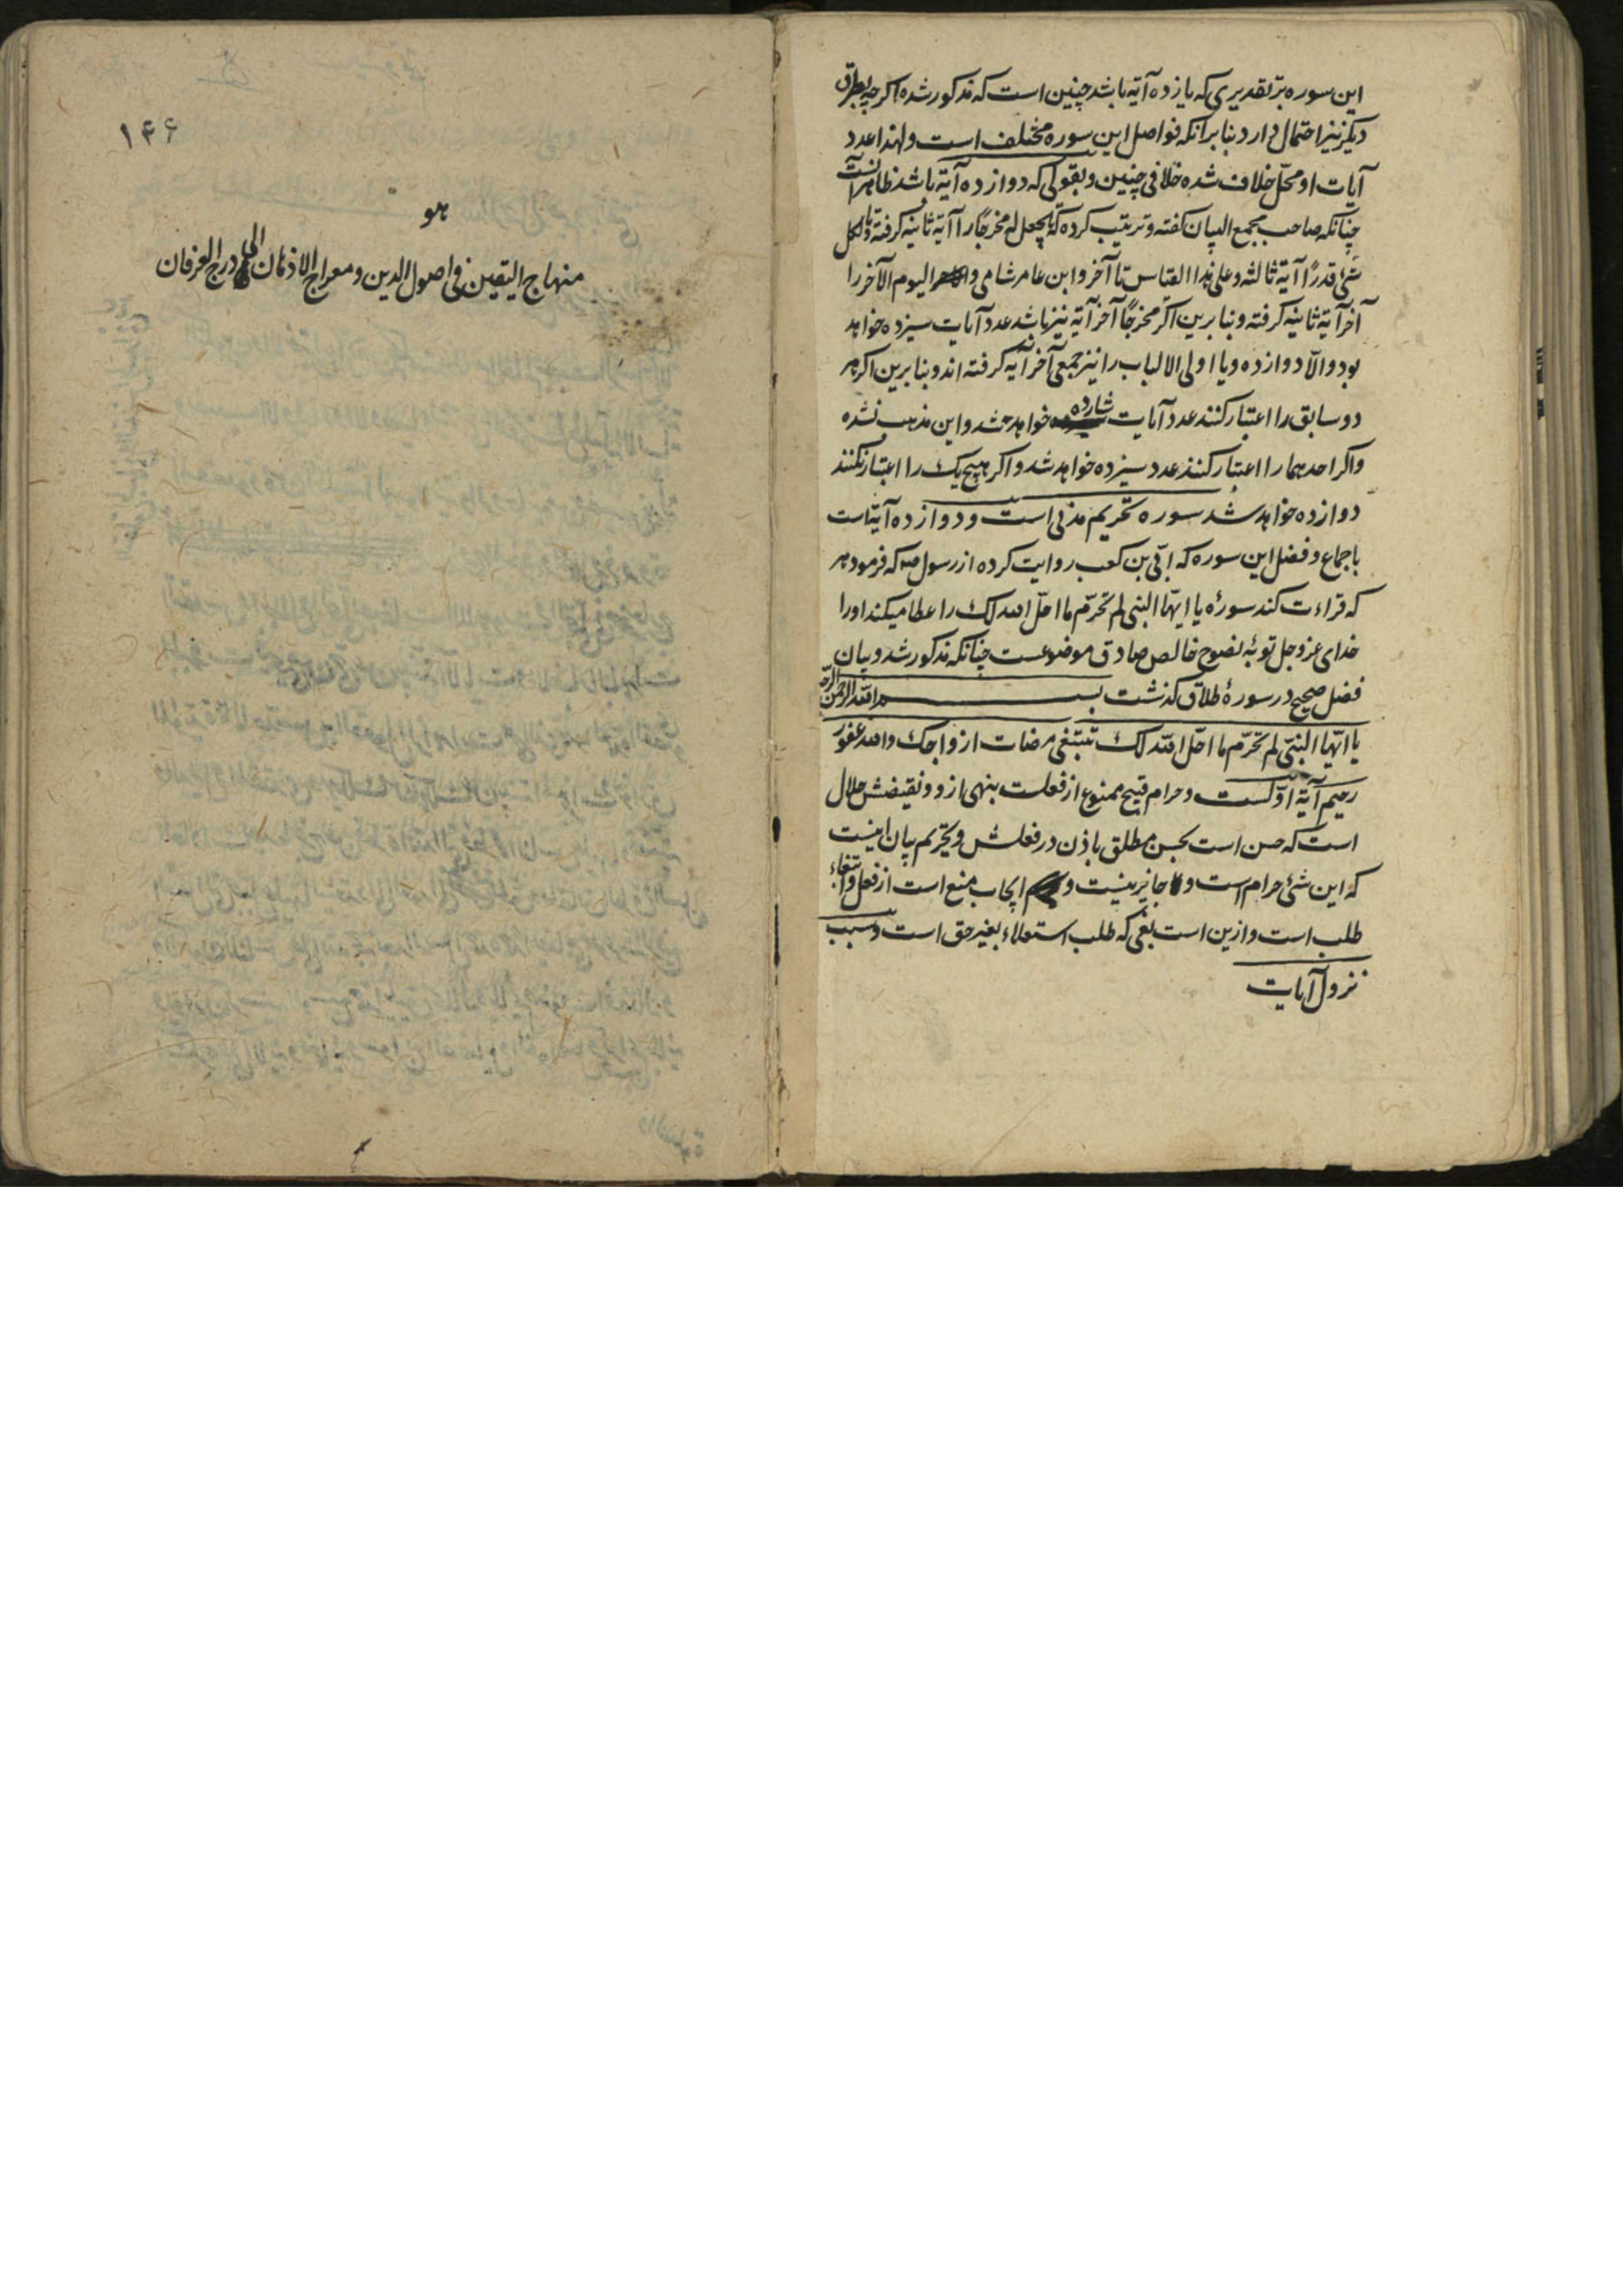 این سوره بر تقدیری که یازده آیة باشد چنین است که مذکور شد اگرچه بطرق
دیگر نیز احتمال دارد بنا بر آنکه فواصل این سوره مختلف است ولهذا عدد
آیات او محلّ خلاف شده خلافی چنین وبقولی که دوازده آیة باشد ظاهر آنست
چنانکه صاحب مجمع البیان گفته وترتیب کرده که یجعل له مخرجًا را آیة ثانیه گرفته ولکل
شئ قدرًا آیة ثالثه وعلی هذا القیاس تا آخر وابن عامر شامی والیوم الآخر را
آخر آیة ثانیه گرفته وبنا برین اگر مخرجًا آخر آیة نیز باشد عدد آیات سیزده خواهد
بود والّا دوازده ویا اولی الالباب را نیز جمعی آخر آیه گرفته اند وبنا برین اگر هر
دو سابق را اعتبار کنند عدد آیات خواهد شد واین مذهب نشده
واگر احدهما را اعتبار کنند عدد سیزده خواهد شد واگر هیچ یک را اعتبار نکنند
دوازده خواهد شد سوره تحریم مدنی است ودوازده آیة است
باجماع وفضل این سوره که ابیّ بن کعب روایت کرده از رسول صه که فرمود هر
که قراءت کند سورهٔ یا ایهّا النبی لم تحرّم ما احلّ الله لک را عطا میکند اورا
خدای عز وجل توبهٔ نصوح خالص صادق موضوعست چنانکه مذکور شد وبیان
فضل صحیح در سورهٔ طلاق گذشت بسم الله الرحمن الرحیم
یا ایّها النبیّ لم تحرّم ما احلّ الله لک تبتغی مرضات ازواجک والله غفور
رحیم آیة اوّلست وحرام قبیح ممنوع از فعلست بنهی ازو ونقیضش حلال
است که حسن است بحسن مطلق باذن در فعلش وتحریم بیان اینست
که این شئ حرام است و جایز نیست و ایجاب منع است از فعل وابتغاء
طلب است وازین است بغی که طلب استعلاء بغیر حق است وسبب
نزول آیات
۱۴۶
هو
منهاج الیقین فی اصول الدین ومعراج الاذهان الی درج العرفان